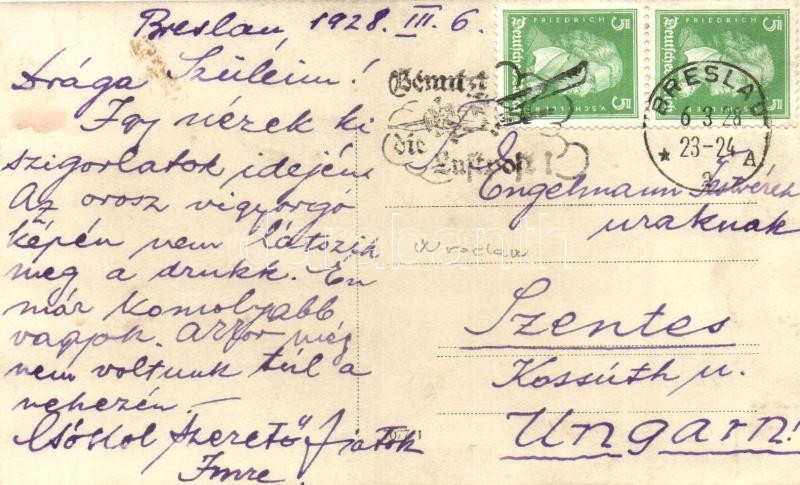 Breslau, 1928. III. 6.
Drága Szüleim!
Így nézek ki
szigorlatok idején.
Az orosz vigyorgó
képén nem látszik
meg a drukk. Én
már komolyabb
vagyok. Akkor még
nem voltunk túl a
nehezén. –
Csókol szerető fiatok
Imre.
FRIEDRICH
FRIEDRICH
5
5
5
5
Deutsches Reich
V. SCHILLER
Benutzt
die
Luftpost!
BRESLAU
6.3.28
23-24
* A
Engelmann Testvérek
uraknak
Wroclaw
Szentes
Kossuth u.
Ungarn!
darabanth